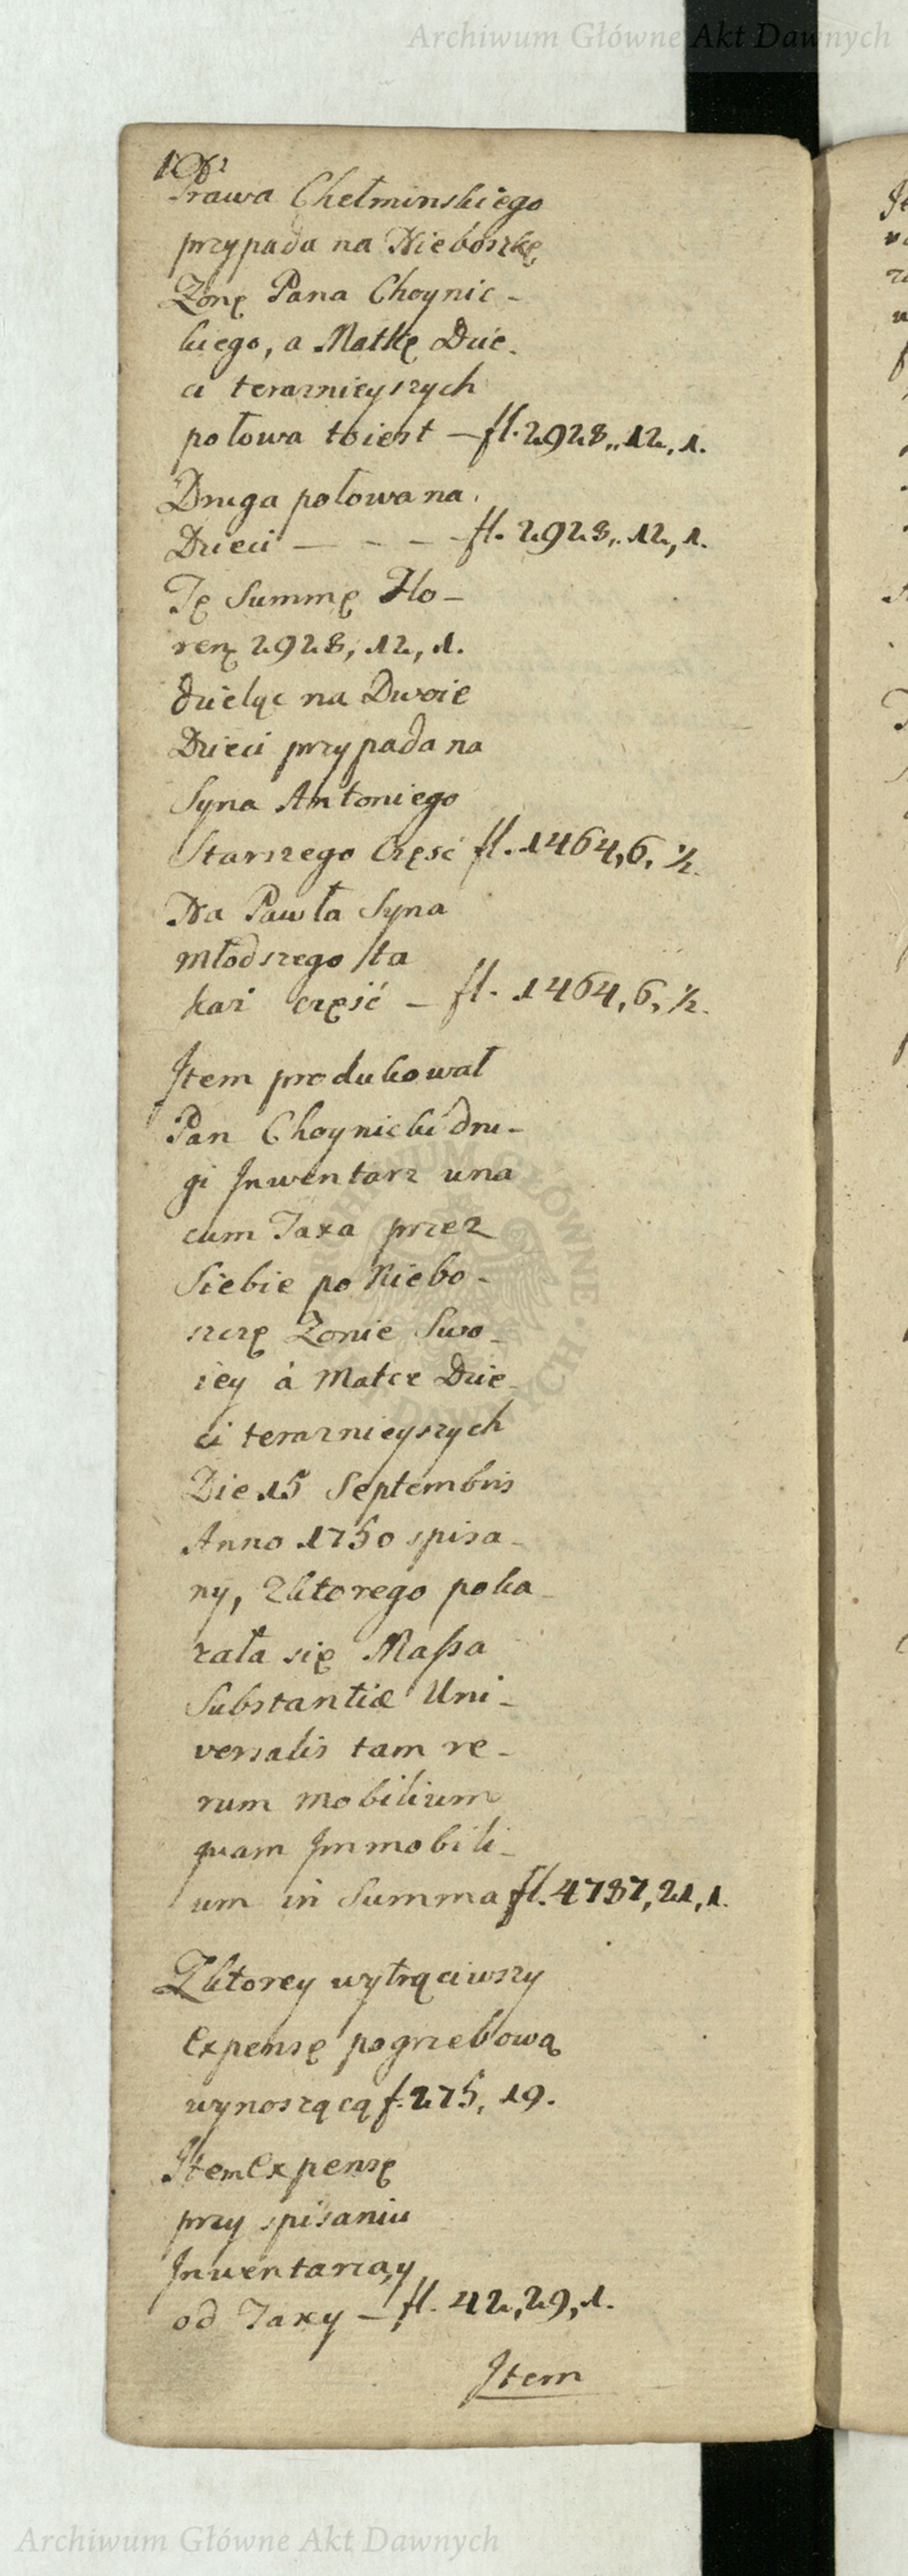 Archiwum Główne Akt Dawnych
Prawa Chełminskiego
przypada na Nieboszkę
Zonę Pana Choynic-
kiego, a Matkę Dzie-
ci teraznieyszych
połowa toiest — fl. 2928,, 12, 1.
Druga połowa na
Dzieci — — — fl. 2928,, 12, 1.
Tę Summę Flo-
renę 2928, 12, 1.
dzieląc na Dwoie
Dzieci przypada na
Syna Antoniego
Starszego Częsć fl. 1464, 6, ½.
Na Pawła Syna
młodszego /ta
każ częsć — fl. 1464, 6, ½.
Item produkował
Pan Choynicki dru-
gi Inwentarz una
cum Taxa przez
Siebie po Niebo-
szczę Zonie Swo-
iey á Matce Dzie-
ci teraznieyszych
Die 15 Septembris
Anno 1750 spisa-
ny, Zktorego poka-
zała się Massa
Substantiæ Uni-
versalis tam re-
rum mobilium
quam Immobili-
um in Summa fl. 4787, 21, 1.
Zktorey wytrąciwszy
Expensę pogrzebową
wynoszącą f. 275, 19.
Item Expensę
przy spisaniu
Inwentarza, y
od Taxy — fl. 42, 29, 1.
Item
ARCHIWUM GŁÓWNE AKT DAWNYCH
Archiwum Główne Akt Dawnych